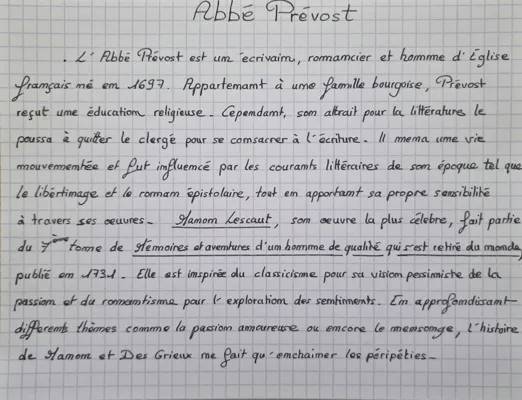 Abbé Prévost
. L'Abbé Prévost est un écrivain, romancier et homme d'Église
français né en 1697. Appartenant à une famille bourgoise, Prévost
reçut une éducation religieuse. Cependant, son attrait pour la littérature le
poussa à quitter le clergé pour se consacrer à l'écriture. Il mena une vie
mouvementée et fut influencé par les courants littéraires de son époque tel que
le libertinage et le roman épistolaire, tout en apportant sa propre sensibilité
à travers ses oeuvres. Manon Lescaut, son oeuvre la plus célèbre, fait partie
du 7ème tome de Mémoires et aventures d'un homme de qualité qui s'est retiré du monde,
publié en 1731. Elle est inspirée du classicisme pour sa vision pessimiste de la
passion et du romantisme pour l'exploration des sentiments. En approfondissant
différents thèmes comme la passion amoureuse ou encore le mensonge, l'histoire
de Manon et Des Grieux ne fait qu'enchainer les péripéties.